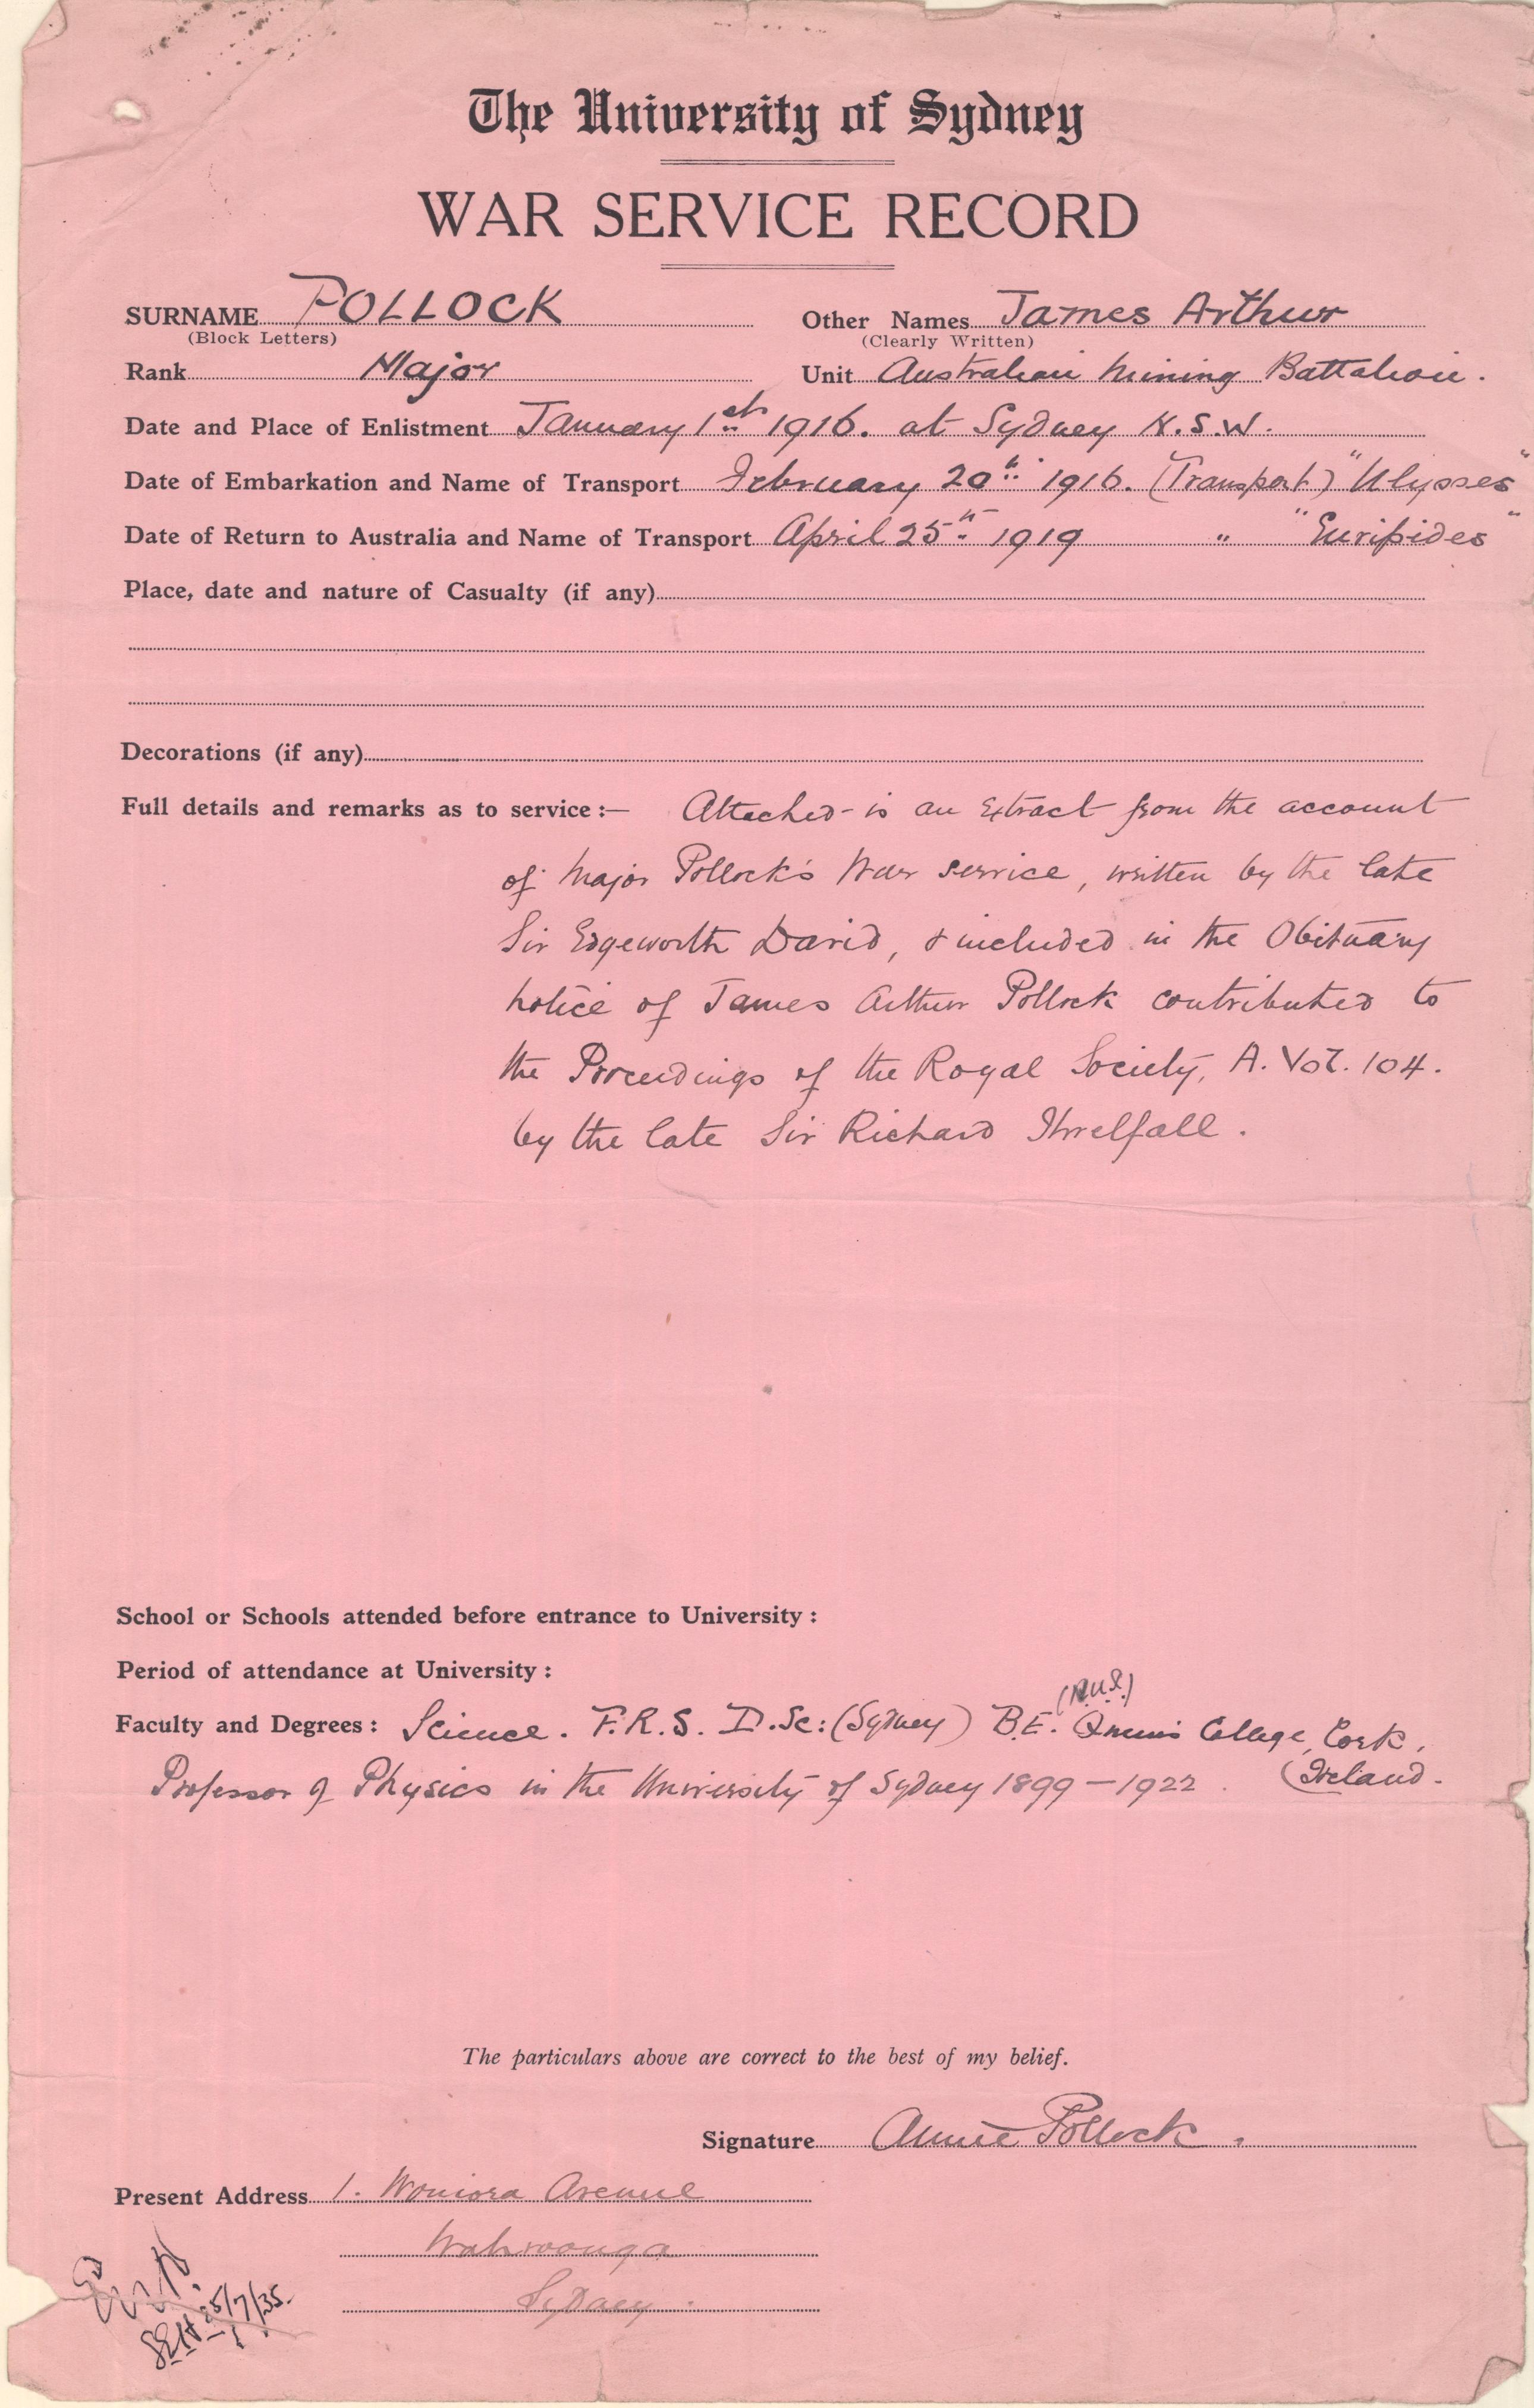 The University of Sydney
WAR SERVICE RECORD
SURNAME POLLOCK Other Names James Arthur
(Block Letters) (Clearly Written)
Rank Major Unit Australian Mining Battalion.
Date and Place of Enlistment January 1st 1916. at Sydney N.S.W.
Date of Embarkation and Name of Transport February 20th 1916. (Transport) "Ulysses"
Date of Return to Australia and Name of Transport April 25th 1919 " "Euripides"
Place, date and nature of Casualty (if any)
Decorations (if any)
Full details and remarks as to service:— Attached is an extract from the account
of Major Pollock's War service, written by the late
Sir Edgeworth David, & included in the Obituary
notice of James Arthur Pollock contributed to
the Proceedings of the Royal Society, A. Vol. 104.
by the late Sir Richard Threlfall.
School or Schools attended before entrance to University:
Period of attendance at University:
(R.U.I.)
Faculty and Degrees: Science. F.R.S. D.Sc: (Sydney) B.E. Queens College, Cork,
Professor of Physics in the University of Sydney 1899-1922. (Ireland.
The particulars above are correct to the best of my belief.
Signature Annie Pollock.
Present Address 1. Woniora Avenue
Wahroonga
Sydney.
25/7/35.